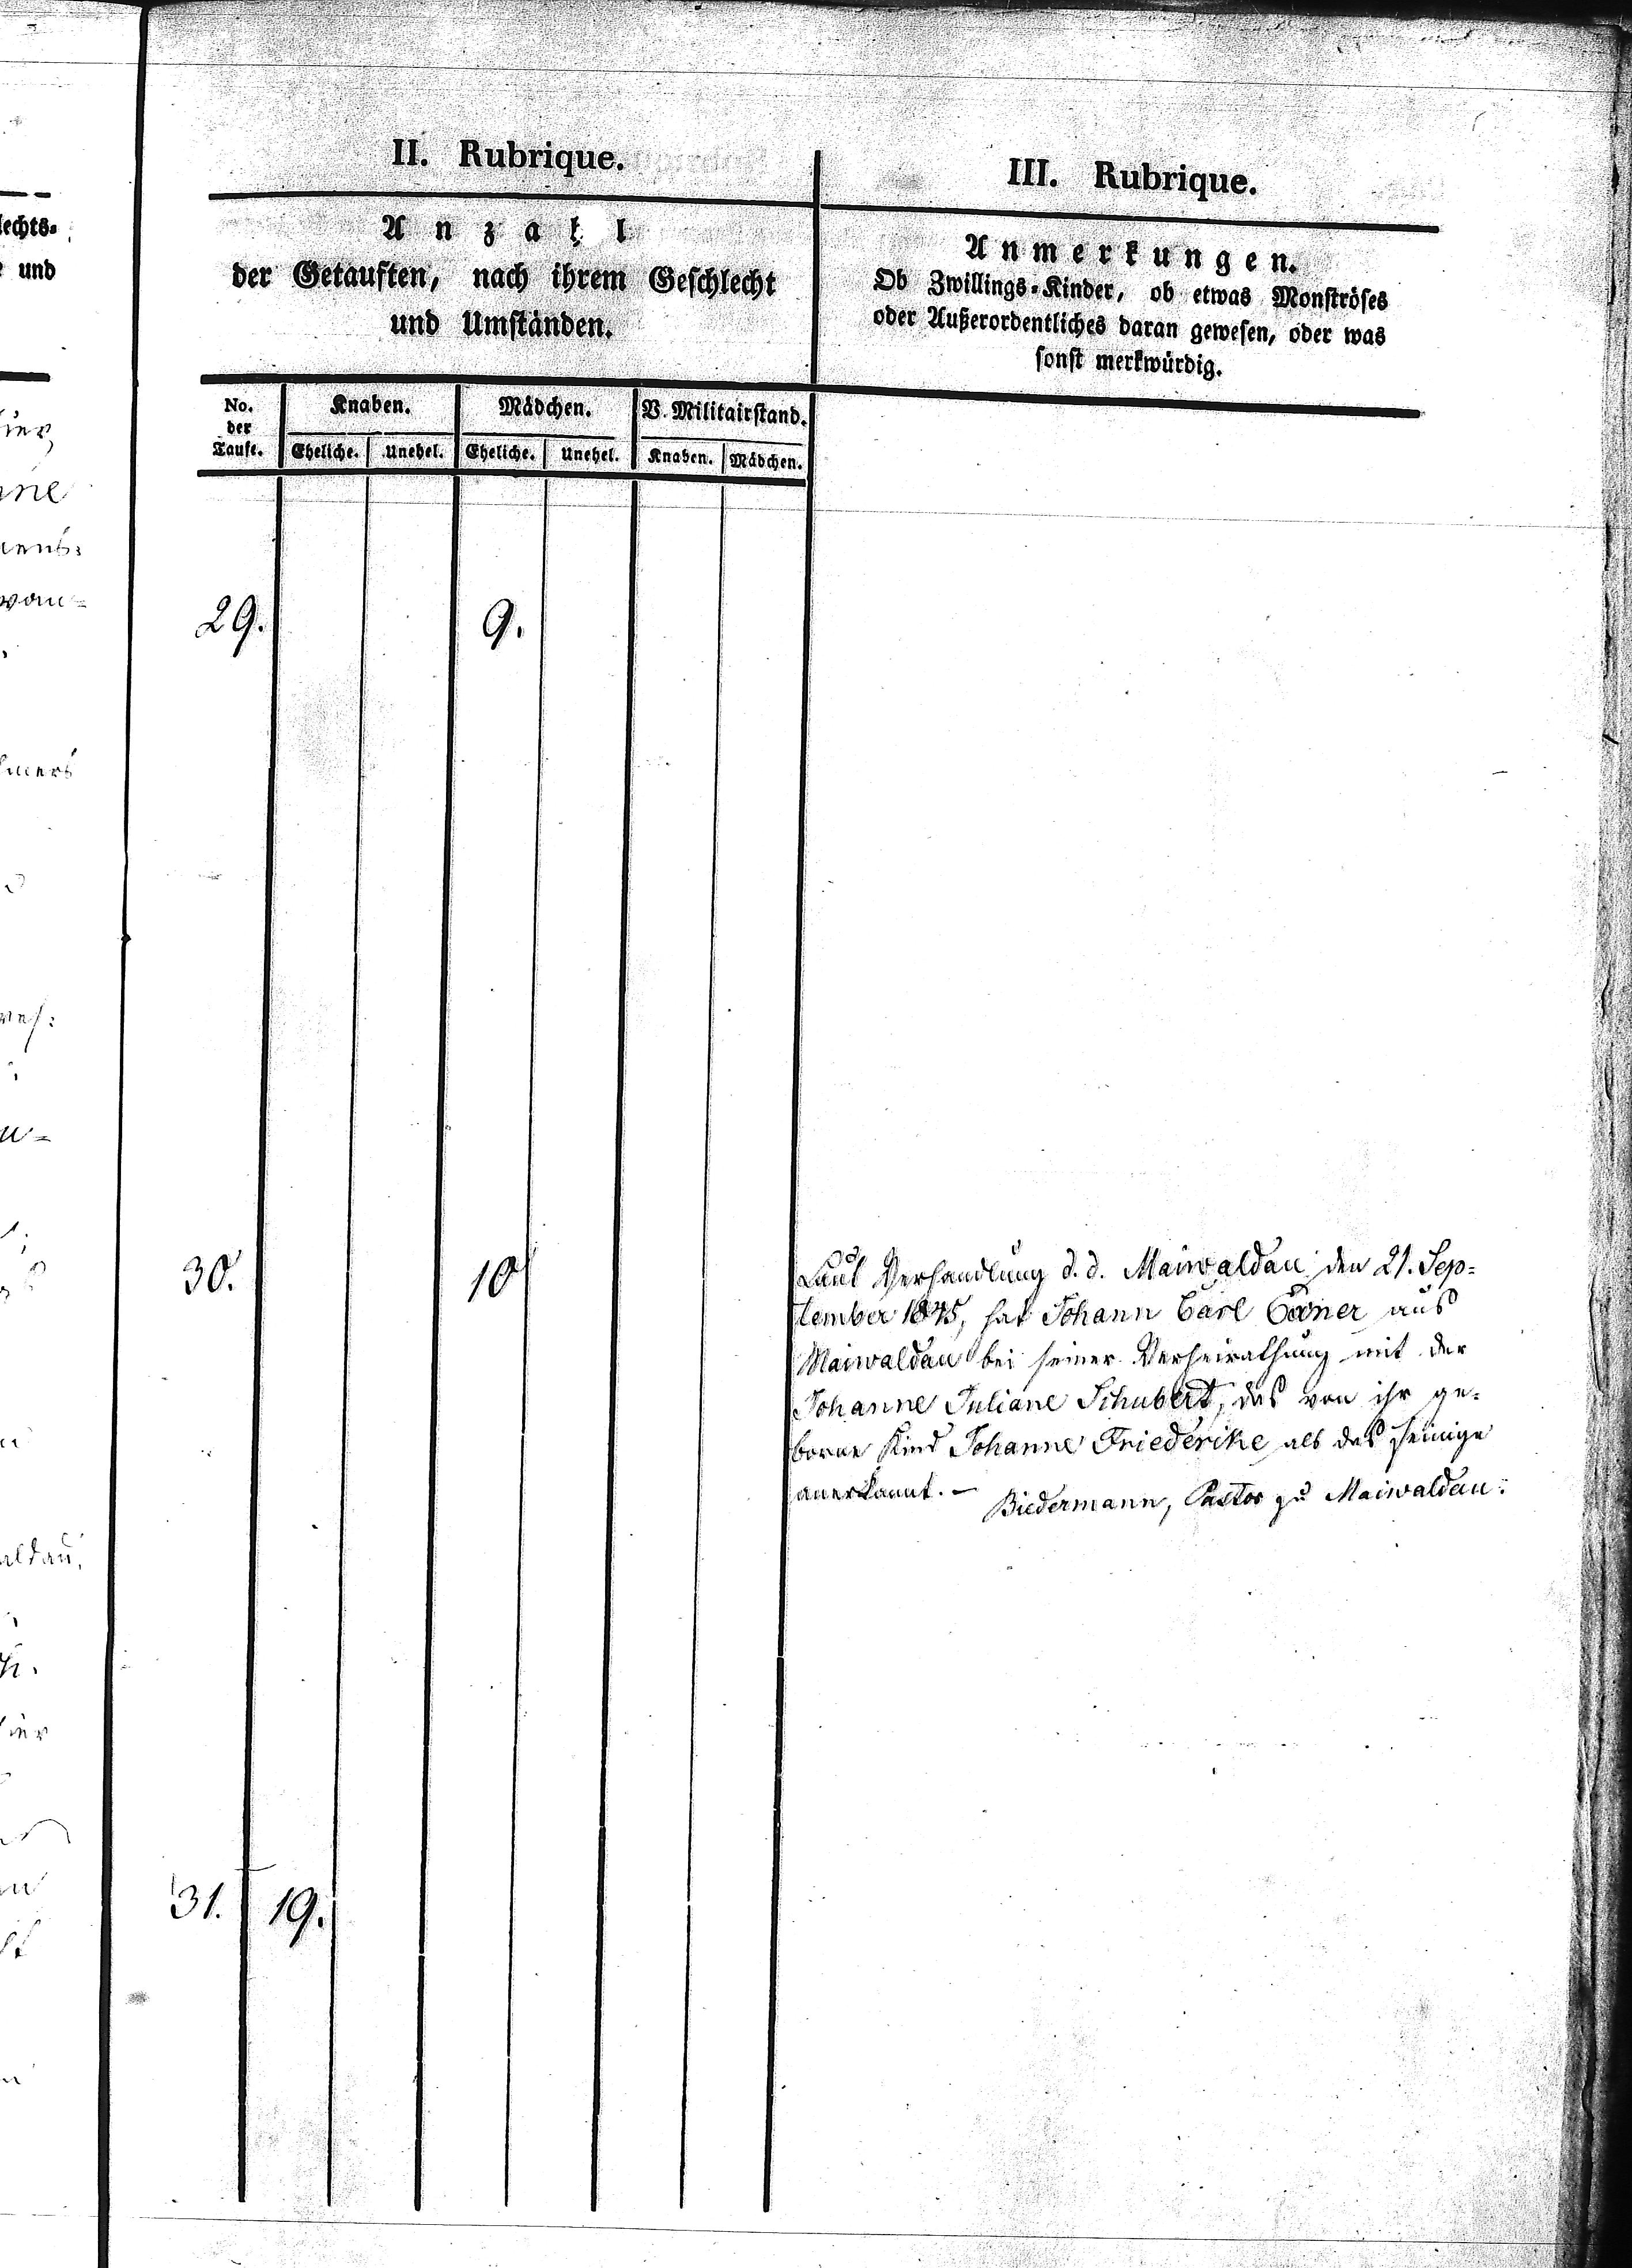 lechts-
und
II. Rubrique.
Anzahl
der Getauften, nach ihrem Geschlecht
und Umständen.
III. Rubrique.
Anmerkungen.
Ob Zwillings-Kinder, ob etwas Monströses
oder Außerordentliches daran gewesen, oder was
sonst merkwürdig.
No. der Taufe.
Knaben.
Mädchen.
V. Militairstand.
Eheliche. Unehel. Eheliche. Unehel. Knaben. Mädchen.
29. 9.
30. 10
Laut Verhandlung d. d. Maiwaldau den 21. Sep-
tember 1845, hat Johann Carl aus
Maiwaldau bei seiner Verheirathung mit der
Johanne Juliane Schubert, das von ihr ge-
borne Kind Johanne Friederike als das seinige
anerkannt. –
Biedermann, Pastor zu Maiwaldau.
aldau,
31. 19.